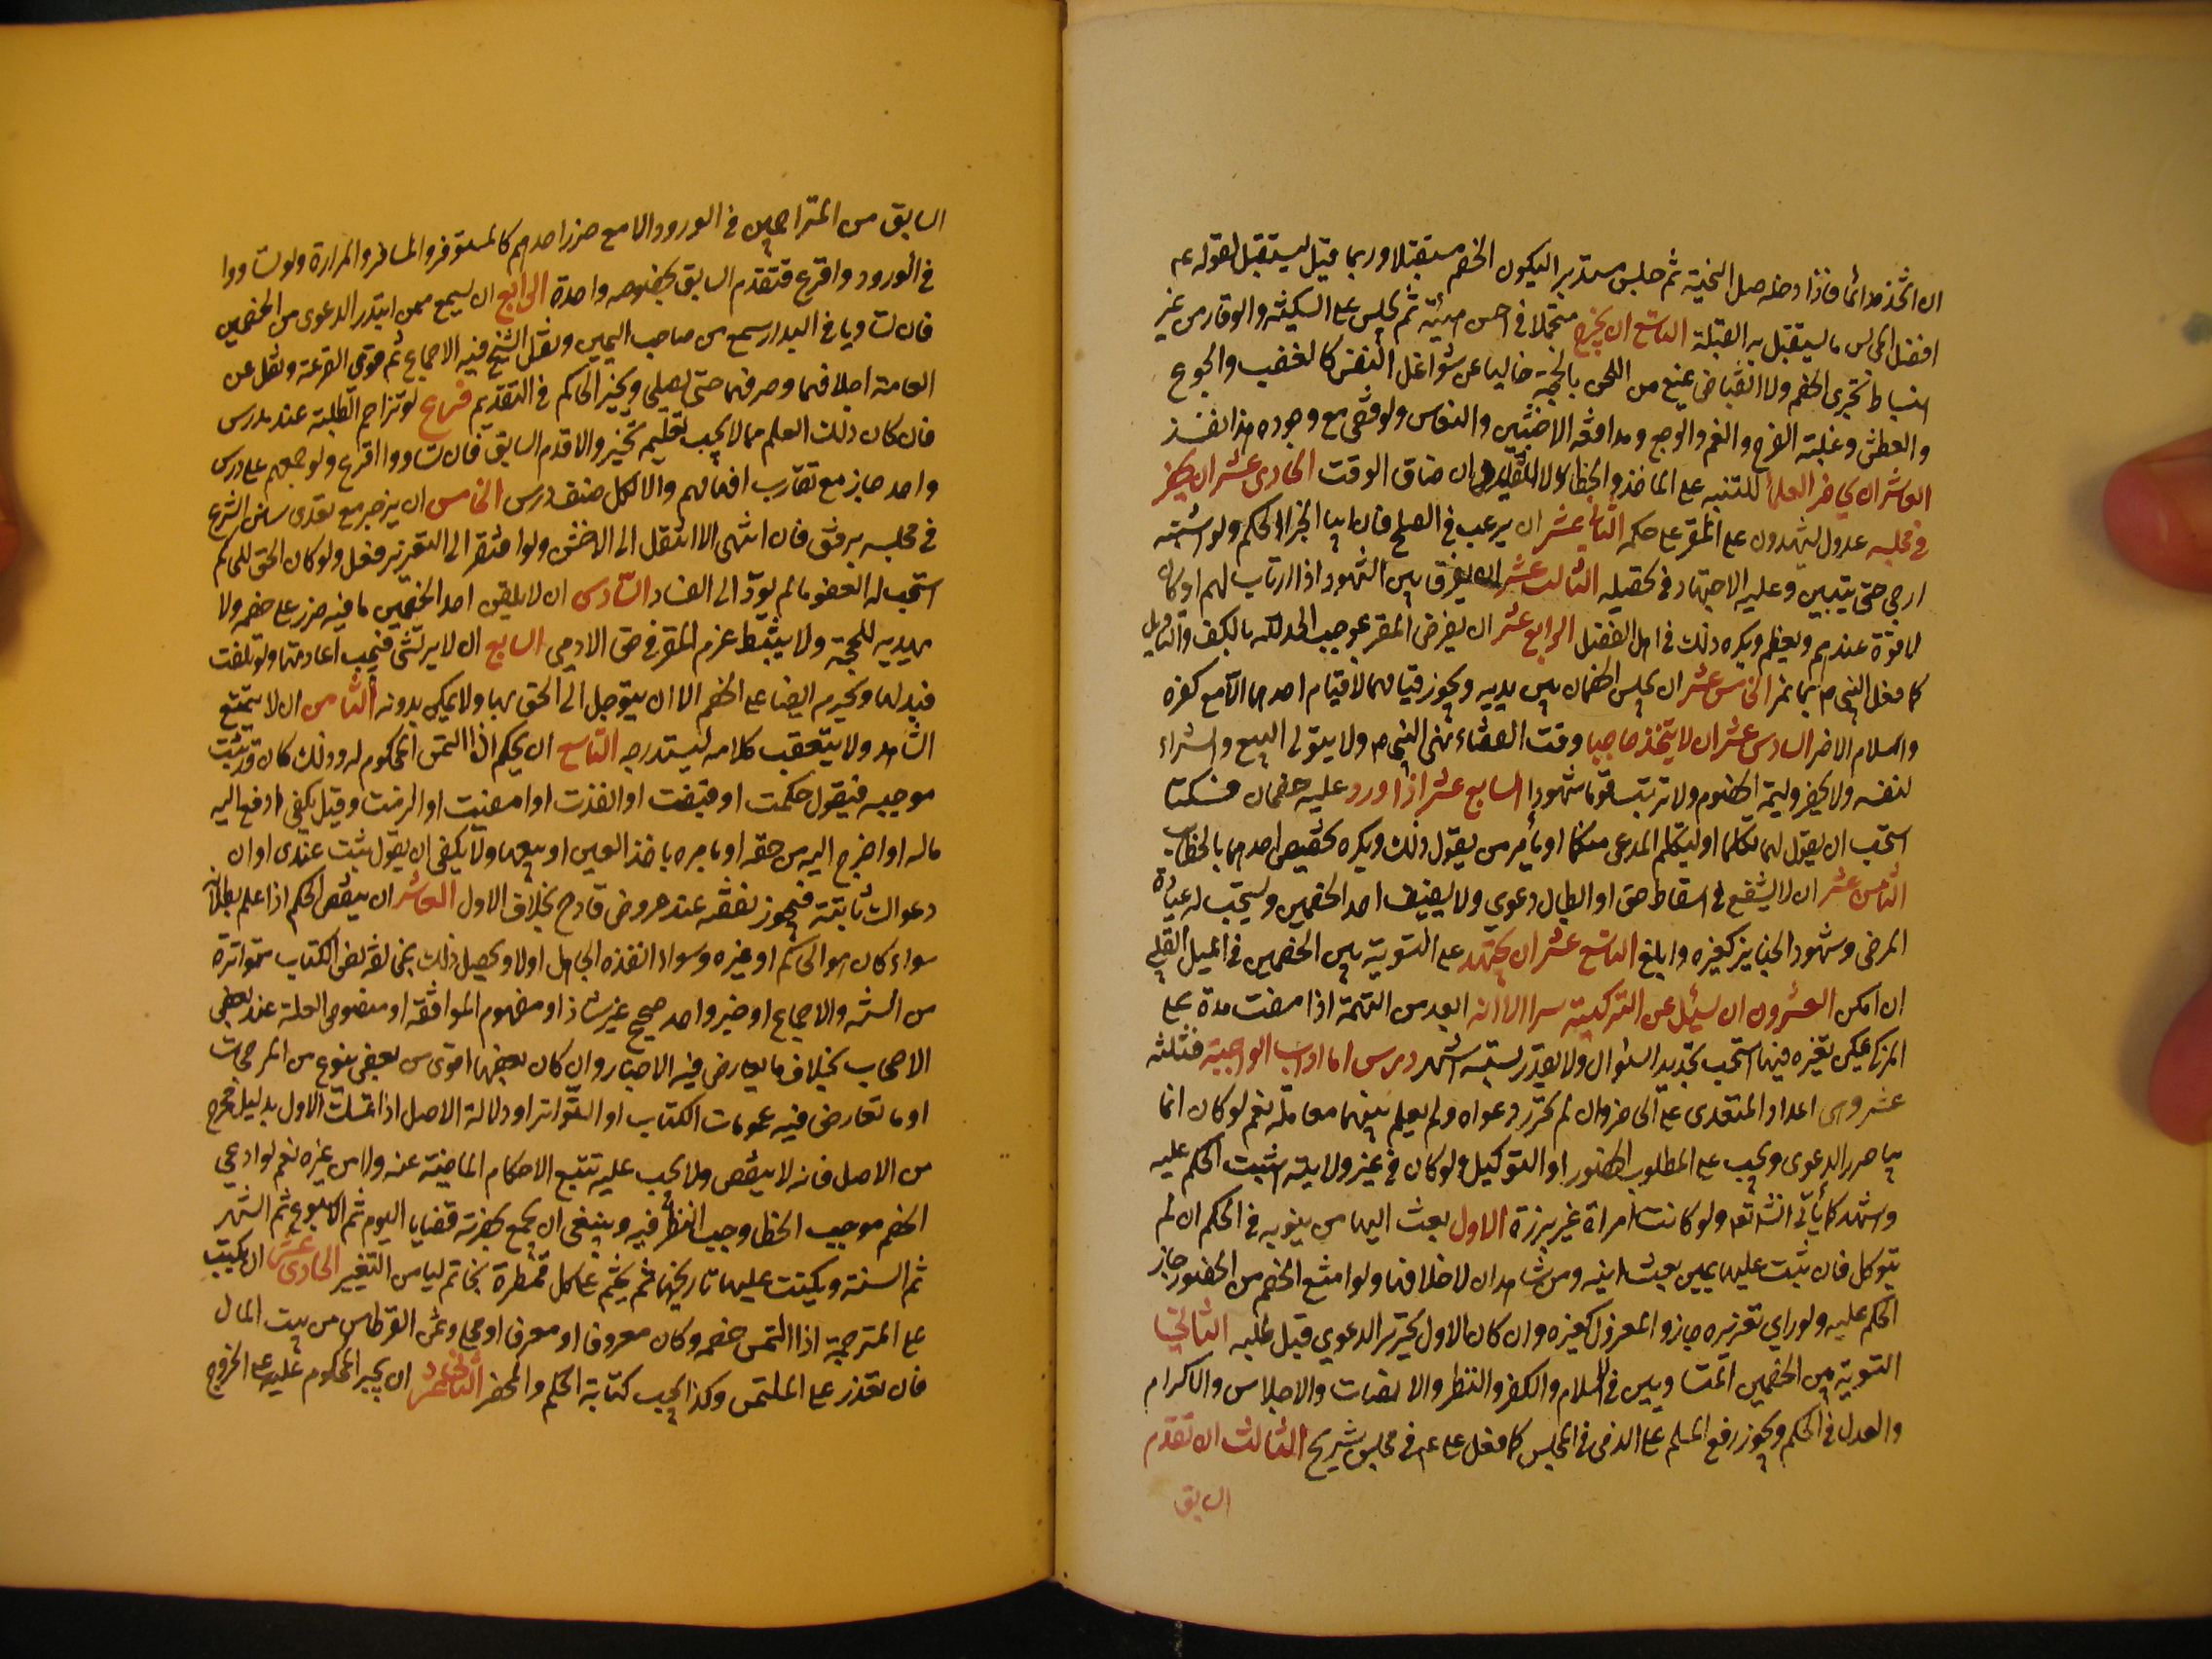 ان اتخذه دائما فاذا دخله صلى التحية ثم جلس مستدبرا ليكون الخصم مستقبلا وربما قيل يستقبل لقوله عم
افضل المجالس ما يستقبل به القبلة التاسع ان يخرج متجملا في احسن هيئة ثم يجلس على السكينة والوقار من غير
انبساط يجرى الخصم ولا انقباض يمنع من اللحن بالحجة خاليا عن شواغل النفس كالغضب والجوع
والعطش وغلبة الفرح والغم والوجع ومدافعة الاخبثين والنعاس ولو قضى مع وجود هذا نفذ
العاشر ان يحاضر العلماء للتنبيه على الماخذ والخطا لا للتقليد وان ضاق الوقت الحادى عشر ان يحضر
في مجلسه عدول يشهدون على المقر على حكمه الثاني عشر ان يرغب في الصلح فان ابيا انجز الحكم ولو اشتبه
ارجى حتى يتبين وعليه الاجتهاد في تحصيله الثالث عشر ان يفرق بين الشهود اذا ارتاب لهم او كان
لا قوة عندهم ويعظم ويكره ذلك في اهل الفضل الرابع عشر ان يعرض المقر بموجب الحد لله بالكف والتاويل
كما فعل النبي ص بماعز الخامس عشر ان يجلس الخصمان بين يديه ويجوز قيامهما لا قيام احدهما الا مع كفره
واسلام الاخر السادس عشر ان لا يتخذ حاجبا وقت القضاء لنهى النبي ص ولا يتولى البيع والشراء
لنفسه ولا يحضر وليمة الخصوم ولا ترتيب قوما شهودا السابع عشر اذا ورد عليه خصمان فسكتا
استحب ان يقول لهما تكلما او ليتكلم المدعى منكما او يامر من يقول ذلك ويكره تخصيص احدهما بالخطاب
الثامن عشر ان لا يشفع في اسقاط حق او ابطال دعوى ولا يضيف احد الخصمين ويستحب له عيادة
المرضى وشهود الجنايز كغيره وابلغ التاسع عشر ان يجتهد على التسوية بين الخصمين في الميل القلبي
ان امكن العشرون ان يسئل عن التزكية سرا لانه ابعد من التهمة اذا مضت مدة على
المزكى يمكن تغيره فيها استحب تجديد السؤال ولا يتقدر بستة اشهر درس اما اداب الواجبة فثلثة
عشر وهى اعداد المتعدى على الحاضر وان لم يحرر دعواه ولم يعلم بينهما معاملة نعم لو كان غائبا
حرر الدعوى ويجب على المطلوب الحضور او التوكيل ولو كان في غير ولايته اثبت الحكم عليه
واشهد كما ياتى انشاء الله تعم ولو كانت امراة غير برزة الاول بعث اليها من ينوبه في الحكم ان لم
يتوكل فان ثبت عليها يمين بعث امينه ومن شاهدان لاحلافها ولو امتنع الخصم من الحضور جاز
الحكم عليه ولو راى تعزيره جاز والمعزول كغيره وان كان الاولى تحرير الدعوى قبل طلبه الثاني
التسوية بين الخصمين المتساويين في السلام والكلام والنظر والانصات والاجلاس والاكرام
والعدل في الحكم ويجوز رفع المسلم على الذمى في المجلس كما فعل على عم في مجلس شريح الثالث ان تقدم
السابق
السابق من المتزاحمين في الورود الا مع ضرر احدهم كالمستوفز والمسافر والمراة ولو تساووا
في الورود واقرع فتقدم السابق بخصومه واحدة الرابع ان يسمع ممن ابتدر الدعوى من الخصمين
فان تساويا في البدار سمع من صاحب اليمين ونقل الشيخ فيه الاجماع ثم قوى القرعة ونقل عن
العامة احلافهما وصرفهما حتى يصطلحا ويخير الحاكم في التقديم فرع لو تزاحم الطلبة عند مدرس
فان كان ذلك العلم مما لا يجب تعليمه تخير والا قدم السابق فان تساووا اقرع ولو جمعهم على درس
واحد جاز مع تقارب افهامهم والا لكل صنف درس الخامس ان يزجر مع تعدى سنن الشرع
في مجلسه برفق فان انتهى والا انتقل الى الاخشن ولو افتقر الى التعزير فعل ولو كان الحق للحاكم
استحب له العفو ما لم يؤد الى الفساد السادس ان لا يلقن احد الخصمين ما فيه ضرر على خصمه ولا
يهديه للحجة ولا يثبط عزم المقر في حق الادمى السابع ان لا يرتشى فيجب اعادتها ولو تلفت
فبدلها ويحرم ايضا على الخصم الا ان يتوصل الى الحق بها ولا يمكن بدونه الثامن ان لا يتعتع
الشاهد ولا يتعقب كلامه ليستدرجه التاسع ان يحكم اذا التمس المحكوم له وذلك كان قد ثبت
موجبه فيقول حكمت او قضيت او انفذت او امضيت او الزمت وقيل يكفى ادفع اليه
ماله او اخرج اليه من حقه او يامره باخذ العين او بيعها ولا يكفى ان يقول ثبت عندى او ان
دعواك ثابتة فيجوز نقضه عند عروض قادح بخلاف الاول العاشر ان ينقض الحكم اذا علم بطلانه
سواء كان هو الحاكم او غيره وسواء انفذه الجاهل اولا ويحصل ذلك بمخالفة نص الكتاب او متواترة
من السنة والاجماع او خبر واحد صحيح غير شاذ او مفهوم الموافقة او منصوص العلة عند بعض
الاصحاب بخلاف ما يعارض فيه الاخبار وان كان بعضها اقوى من بعض بنوع من المرجحات
او ما تعارض فيه عمومات الكتاب او المتواتر او دلالة الاصل اذا تمسك الاول بدليل مخرج
من الاصل فانه لا ينقض ولا يجب عليه تتبع الاحكام الماضية عنه ولا من غيره نعم لو ادعى
الخصم موجب الخطا وجب النظر فيه وينبغى ان يجمع بحضرته قضايا اليوم ثم الاسبوع ثم الشهر
ثم السنة ويكتب عليها تاريخها ثم يختم على كل قمطرة بخاتم ليامن التغيير الحادى عشر ان يكتب
على المترجمة اذا التمس خصمه وكان معروفا او معرفا او محلى وثمن القرطاس من بيت المال
فان تعذر على الملتمس وكذا يجب كتابة الحكم والمحضر الثاني عشر ان يجبر المحكوم عليه على الخروج